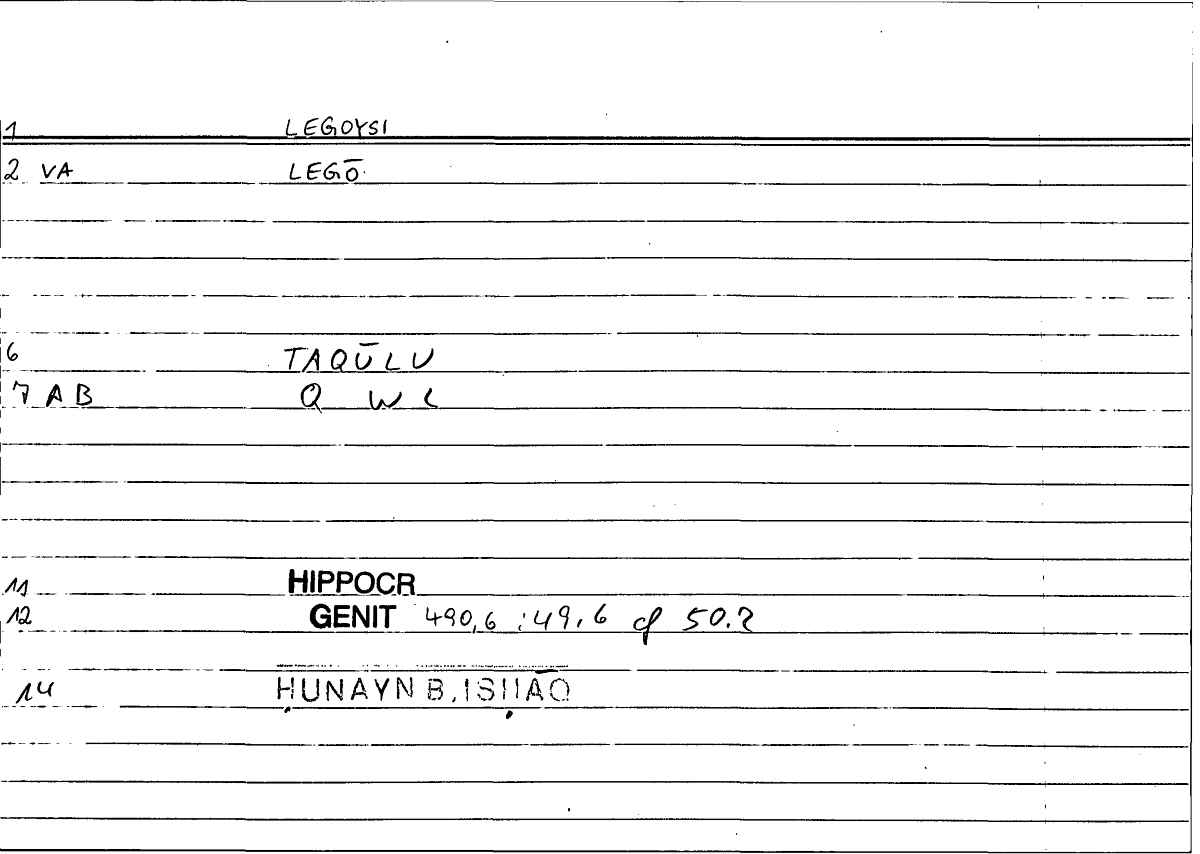 1 LEGOYSI
2 VA LEGŌ
6 TAQŪLU
7 AB Q W L
11 HIPPOCR
12 GENIT 490,6 : 49,6 cf 50.2
14 ḤUNAYN B. ISḤĀQ